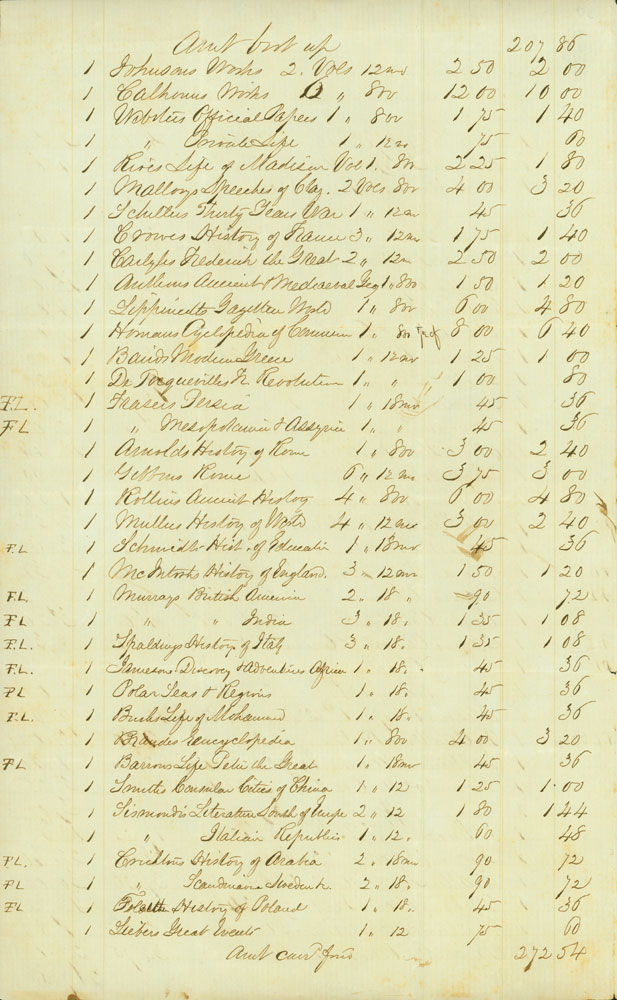 Amt brot up 207 86
1 Johnsons Works 2. Vols 12mo 2 50 2 00
1 Calhouns Works " 8vo 12 00 10 00
1 Websters Official Papers 1 " 8vo 1 75 1 40
1 " Private Life 1 " 12mo 75 60
1 Rives Life of Madison Vol 1. 8vo 2 25 1 80
1 Mallorys Speeches of Clay. 2 Vols 8vo 4 00 3 20
1 Schillers Thirty Years War 1 " 12mo 45 36
1 Crowes History of France 3 " 12mo 1 75 1 40
1 Carlyles Frederick the Great 2 " 12m 2 50 2 00
1 Anthons Ancient & Mediaeval Geg 1 " 8vo 1 50 1 20
1 Lippincotts Gazetteer World 1 " 8vo 6 00 4 80
1 Homans Cyclopedia of Commerce 1 " 8vo 8 00 6 40
1 Bairds Modern Greece 1 " 12mo 1 25 1 00
1 De Tocquevilles Fr Revolution 1 " " 1 00 80
F.L. 1 Frasers Persia 1 " 18mo 45 36
FL 1 " Mesopotamia & Assyria 1 " " 45 36
1 Arnolds History of Rome 1 " 8vo 3 00 2 40
1 Gibbons Rome 6 " 12mo 3 75 3 00
1 Rollins Ancient History 4 " 8vo 6 00 4 80
1 Mullers History of World 4 " 12mo 3 00 2 40
F.L 1 Schmidts Hist. of Education 1 " 18mo 45 36
1 McIntoshs History of England. 3 " 12mo 1 50 1 20
F.L 1 Murrays British America 2 " 18 " 90 72
FL 1 " " India 3 " 18 " 1 35 1 08
F.L. 1 Spaldings History of Italy 3 " 18 " 1 35 1 08
F.L. 1 Jamesons Discovery & Adventures Africa 1 " 18 " 45 36
FL 1 Polar Seas & Regions 1 " 18 " 45 36
F.L. 1 Bushs Life of Mohammed 1 " 18 " 45 36
1 Brandes Encyclopedia 1 " 8vo 4 00 3 20
FL 1 Barrows Life Peter the Great 1 " 18mo 45 36
1 Smiths Consular Cities of China 1 " 12 1 25 1.00
1 Sismondis Literature South of Europe 2 " 12 1 80 1 44
1 " Italian Republics 1 " 12 " 60 48
FL. 1 Crichtons History of Arabia 2 " 18mo 90 72
FL 1 " Scandinavia Sweden &c. 2 " 18 " 90 72
FL 1 History of Poland 1 " 18 " 45 36
1 Liebers Great Events 1 " 12 75 60
Amt card ford 272 54